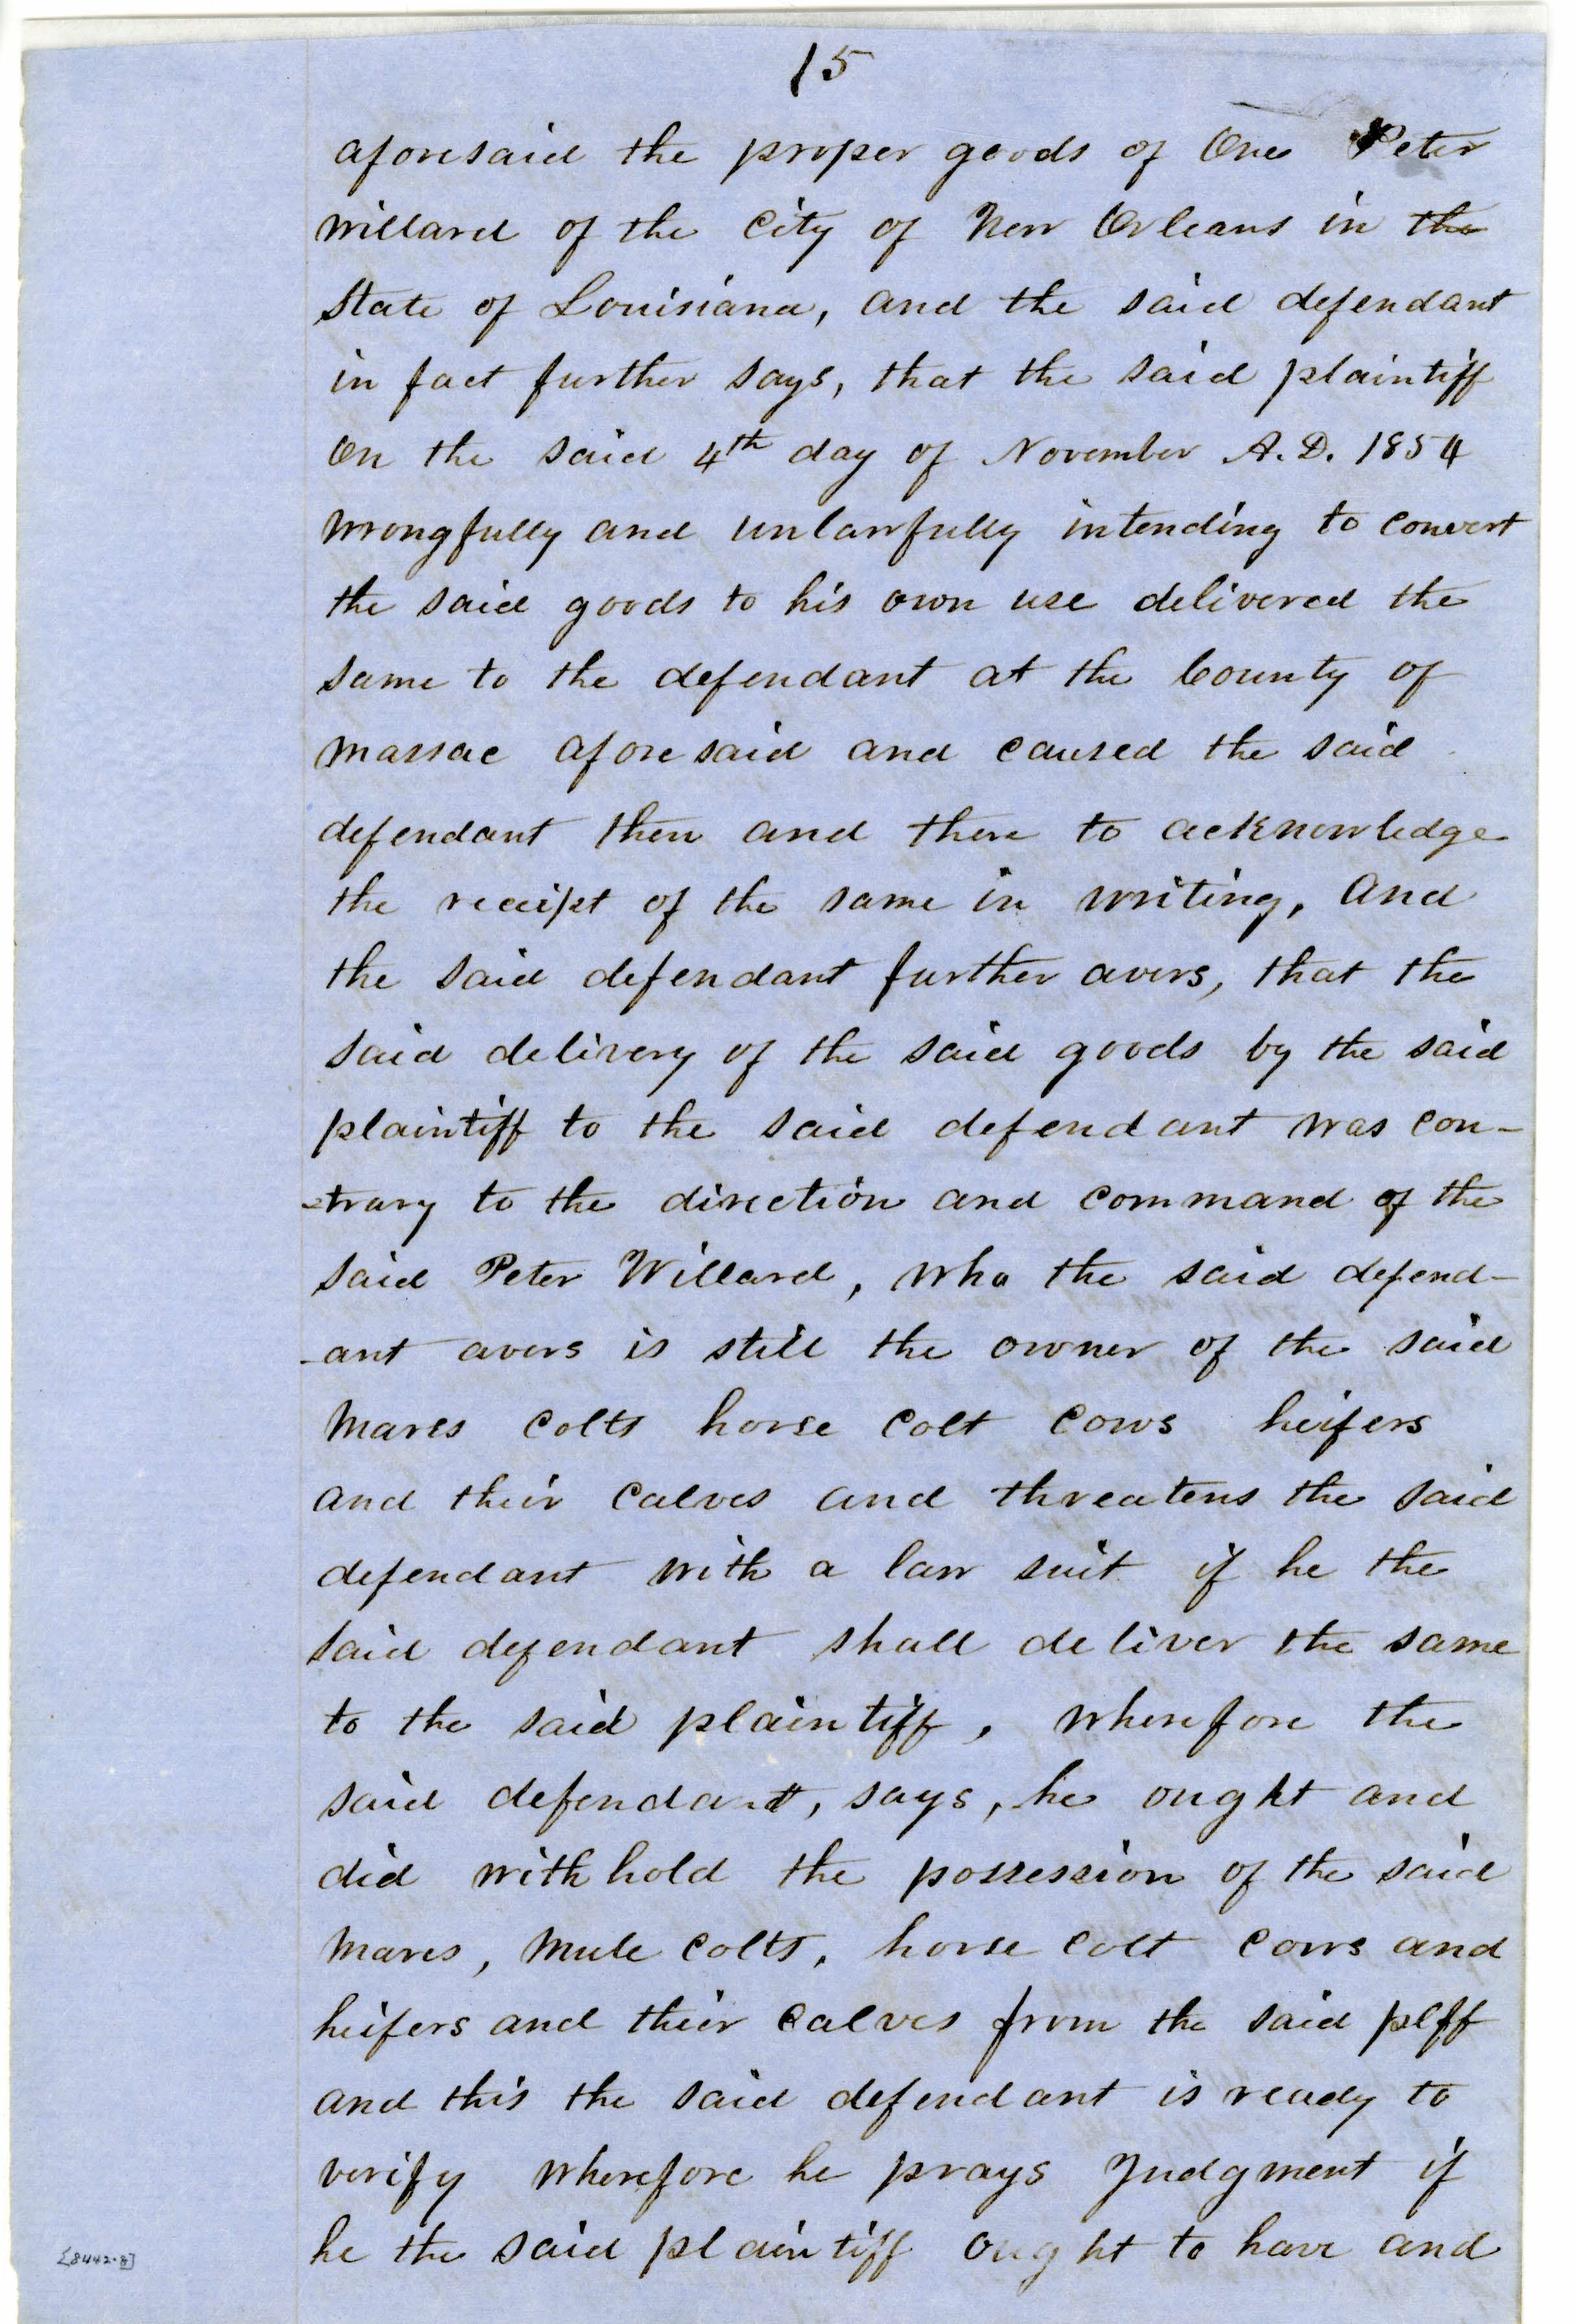 15
aforesaid the proper goods of One Peter
Willard of the City of New Orleans in the
State of Louisiana, and the said defendant
in fact further says, that the said plaintiff
On the said 4th day of November A.D. 1854
Wrongfully and unlawfully intending to convert
the said goods to his own use delivered the
same to the defendant at the County of
Massac aforesaid and caused the said
defendant then and there to acknowledge
the receipt of the same in writing, And
the said defendant further avers, that the
said delivery of the said goods by the said
plaintiff to the said defendant was con-
-trary to the direction and command of the
said Peter Willard, who the said defend-
-ant avers is still the owner of the said
Mares Colts horse Colt Cows heifers
and their Calves and threatens the said
defendant with a law suit if he the
said defendant shall deliver the same
to the said plaintiff, Wherefore the
said defendant, says, he ought and
did withhold the possession of the said
Mares, Mule Colts, horse Colt Cows and
heifers and their Calves from the said plff
and this the said defendant is ready to
verify wherefore he prays Judgment if
he the said plaintiff ought to have and
[8442-8]